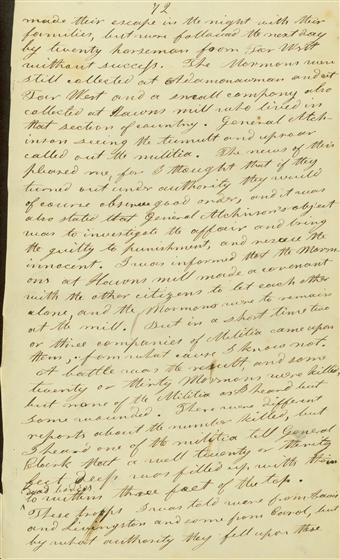 72
made their escape in the night with their
families, but were followed the next day
by twenty horseman from Far West
without success. The Mormons were
still collected at Adamonawman and at
Far West and a small company also
collected at Hawns mill who lived in
that section of country. General Atch-
inson seeing the tumult and uproar
called out the militia. The news of this
pleased me, for I thought that if they
turned out under authority they would
of course observe good order, and it was
also stated that General Atchinson's object
was to investigate the affair and bring
the guilty to punishment, and rescue the
innocent. I was informed that the Morm-
ons at Hawns mill made a covenant
with the other citizens to let each other
alone, and the Mormons were to remain
at the mill. But in a short time two
or three companies of Militia came upon
them, from what cause I know not.
A battle was the result, and some
twenty or thirty Mormons were killed,
but none of the Militia as I heard but
some wounded. There were different
reports about the number killed, but
I heard one of the militia tell General
Clark that a well twenty or thirty
feet deep was filled up with their
dead bodies
to within three feet of the top.
These troops I was told were from Davis
and Livingston and some from Carol, but
by what authority they fell upon these